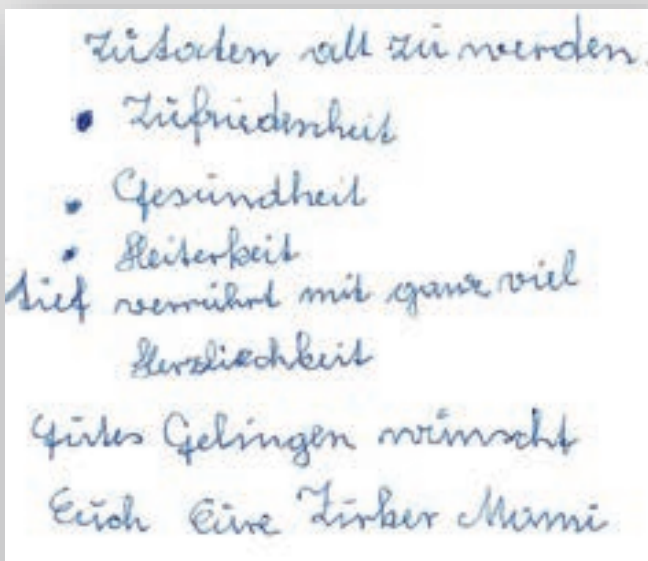 Zutaten alt zu werden.
• Zufriedenheit
• Gesundheit
• Heiterkeit
tief verrührt mit ganz viel
Herzlichkeit
Gutes Gelingen wünscht
Euch Eure Zirker Mami